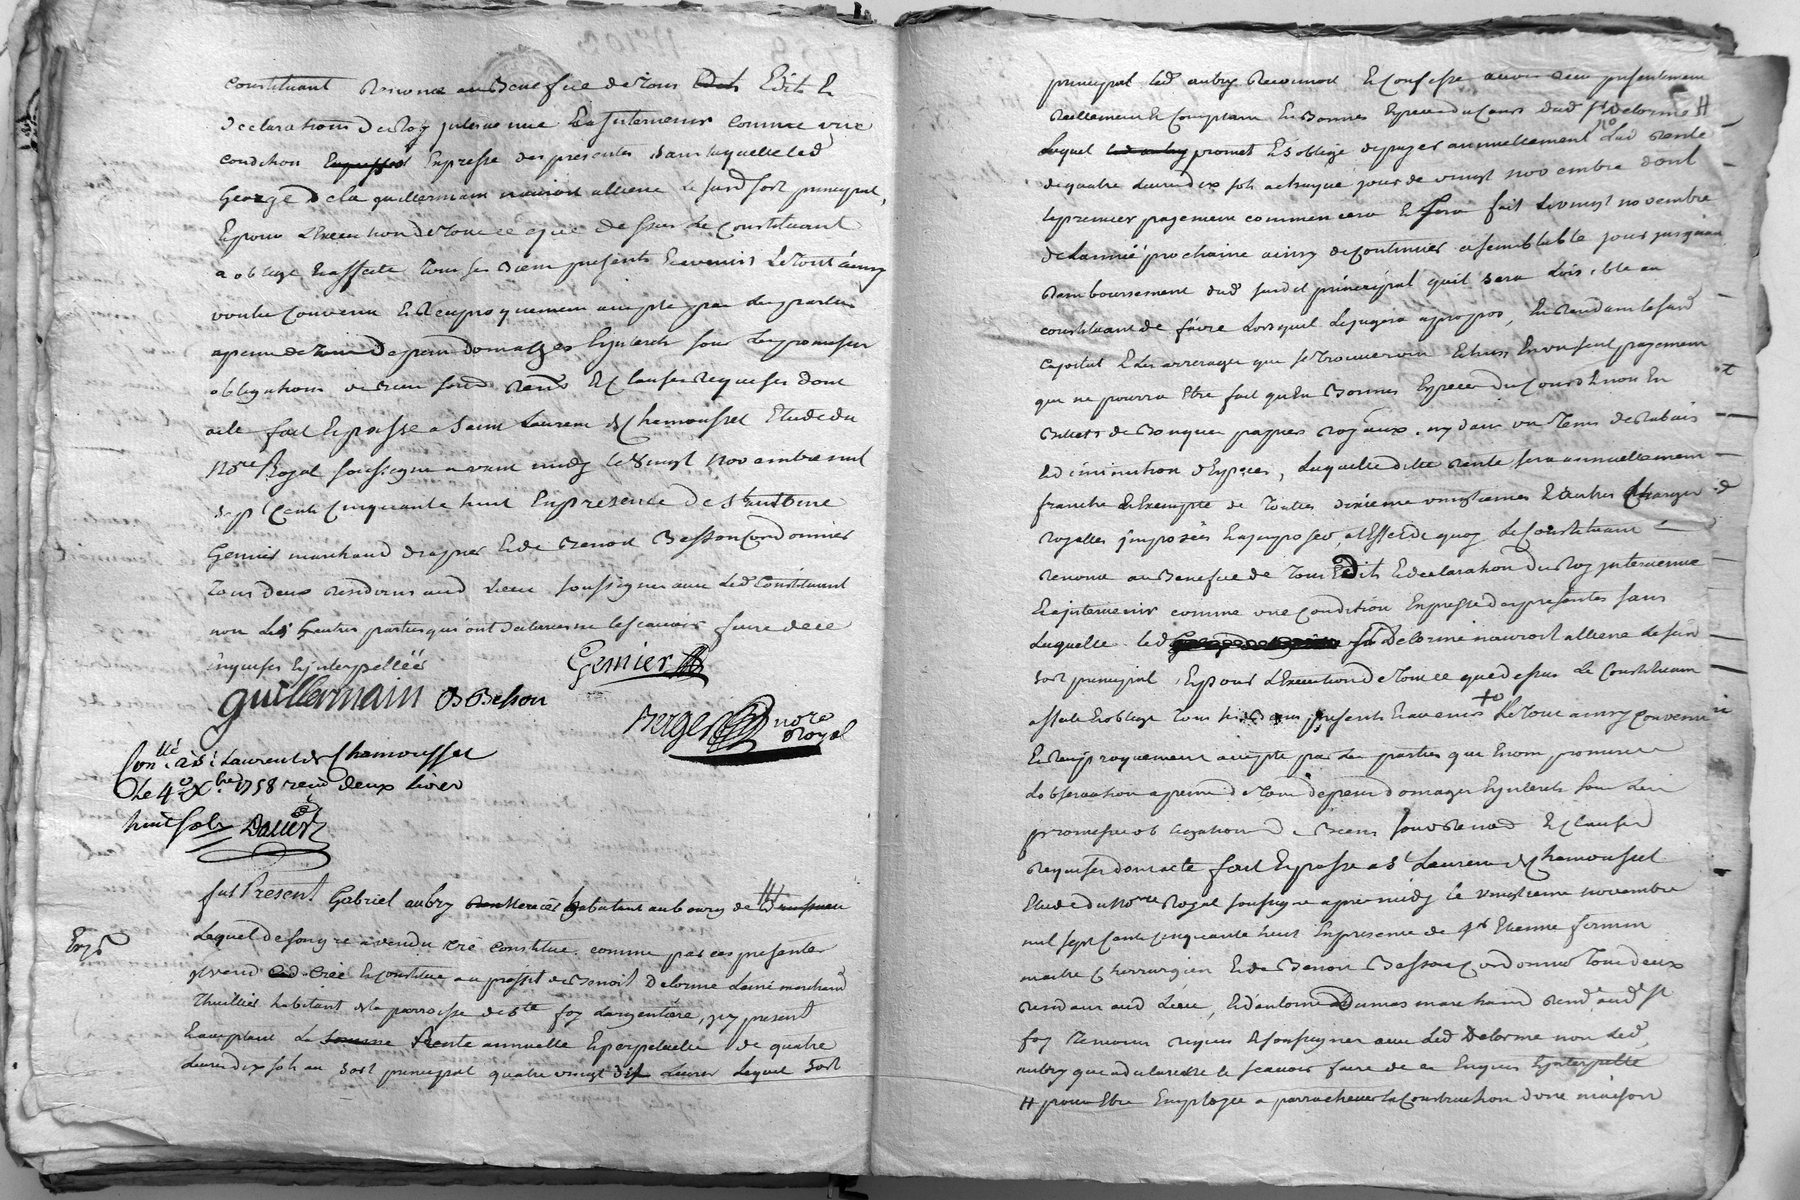 constituant Renonce au Benefice de tous Edits &
declarations du Roy intervenue Ea jntervenir comme une
condition Expresse des presentes sans laquelle led
George dela guillermain n'auroit alliene le surd sort principal,
Epour L'Execution de tout ce que dessus Le Constituant
a oblige Eaffecte tous ses Biens presents Eavenirs Le tout ainsy
voulu Convenu Et Reciproquement accepte par les parties
apeine de tous depens domages Ejnterets sous les promesses
obligations de Biens soub Renon Et Clauses Requises dont
acte fait Epasse a Saint Laurent de Chamousset Etude du
No.re Royal soussigne avant midy le vingt novembre mil
sept Cents Cinquante huit En presence de sr antoine
Gemier marchand drapier Et de Benoit Besson Cordonnier
tous deux residents aud Lieu soussignes avec Led Constituant
non les autres parties qui ont declares ne le scavoir faire de ce
enquises Ejnterpellées
Gemier
guillermain B Besson
Berger nore
Royal
Con.lle à St Laurent de Chamousset
Le 4e Xbre 1758 recu deux livres
huit sols Dalier
fut Present Gabriel aubry habitant au bourg de
Lequel de son gre a vendu crée constitue comme par ces presentes
jl vend crée Et constitue au proffit de Benoit Delorme Lainé marchand
thuillier habitant de la parroisse de ste foy Largentiere, jcy present
Eacceptant La Rente annuelle Eperpetuelle de quatre
Livres dix sols au sort principal quatre vingt dix Livres Lequel sort
principal led aubry Reconnoit Et Confesse avoir receu presentement
Reellement Et Comptant En Bonnes Espece du Cours dud sr Delorme #
Lequel promet Et s'oblige de payer annuellement Lad rente
de quatre Livres dix sols a chaque jour de vingt novembre dont
le premier payement commencera Et sera fait Le vingt novembre
de Lannée prochaine ainsy de Continuer a semblable jour jusquau
Remboursement dud susdit principal quil sera Loisible au
constituant de faire Lorsquil Le jugera apropos, En Rendant le surd
Capital Et les arrerages que se trouveront Echus En un seul payement
que ne pourra Etre fait quEn Bonnes Espece du Cours Enon En
Billets de Banque papiers Royaux, ny dans un tems de Rabais
Ed diminution d'Especes, Laquelle ditte rente sera annuellement
franche Et Exempte de toutes dixieme vingtiemes Et autres Charges
Royalles jmposées Ea jmposer, a l'Effet de quoy Le Constituant
Renonce au Benefice de tous Edits Et declaration du Roy jntervenue
Ea jntervenir comme une condition Expresse des presentes sans
Laquelle led sr Delorme n'auroit alliene Le surd
sort principal, Epour L'Execution de tout ce que dessus Le Constituant
affecte Et oblige tous ses Biens presents Eavenirs Le tout ainsy convenu
Et Reciproquement accepte par les parties que Enont promis
Lobservation a peine de tous depens domages Ejnterets sous Leur
promesse obligation de Biens soub Renon Et Clauses
Requises dont acte fait Epasse a St Laurent de Chamousset
Etude du No.re Royal soussigne apres midy le vingtieme novembre
mil sept Cents cinquante huit En presence de sr Etienne fermin
maitre Chirurgien Et de Benoit Besson Cordonnier tous deux
residents aud Lieu, Ed antoine Dumas marchand resid.t aud.t st
foy temoins requis Et soussignes avec Led Delorme non Led
aubry que a declare ne le scavoir faire de ce Enquis Ejnterpelle
# pour Etre Employée a parrachever la Construction d'une maison